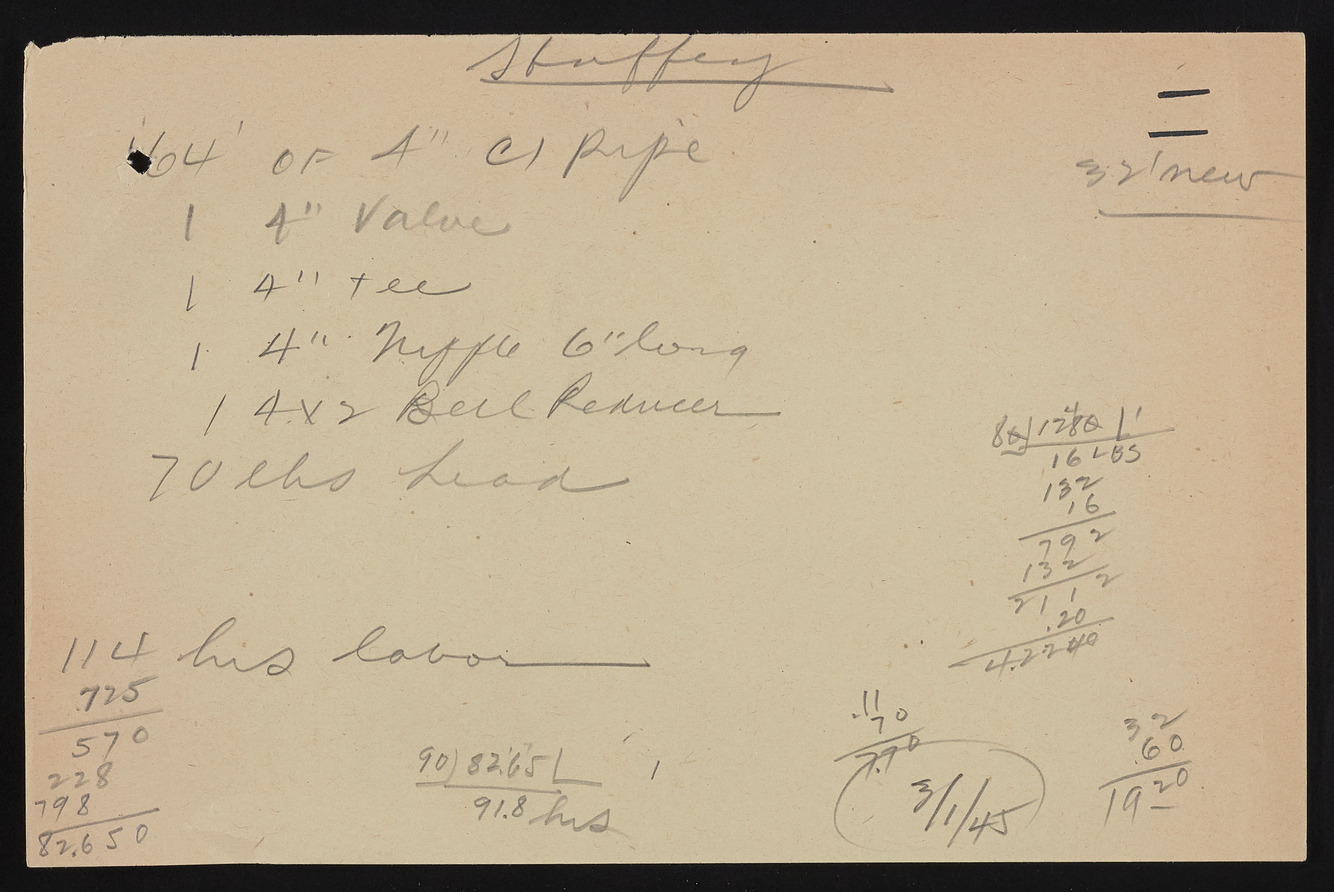 Staffey
'64' OF 4" CI Pipe
32' new
1 4" Valve
1 4" tee
1 4" Nipple 6" long
1 4x2 Bell Reducer
70 lbs Lead
80)1280 L'
16 LBS
132
16
792
132
2112
.20
42240
114 hrs labor
.725
570
228
798
82.650
90)82.65 L 1
91.8 hrs
.11
70
7.70
3/1/45
32
.60
19 20